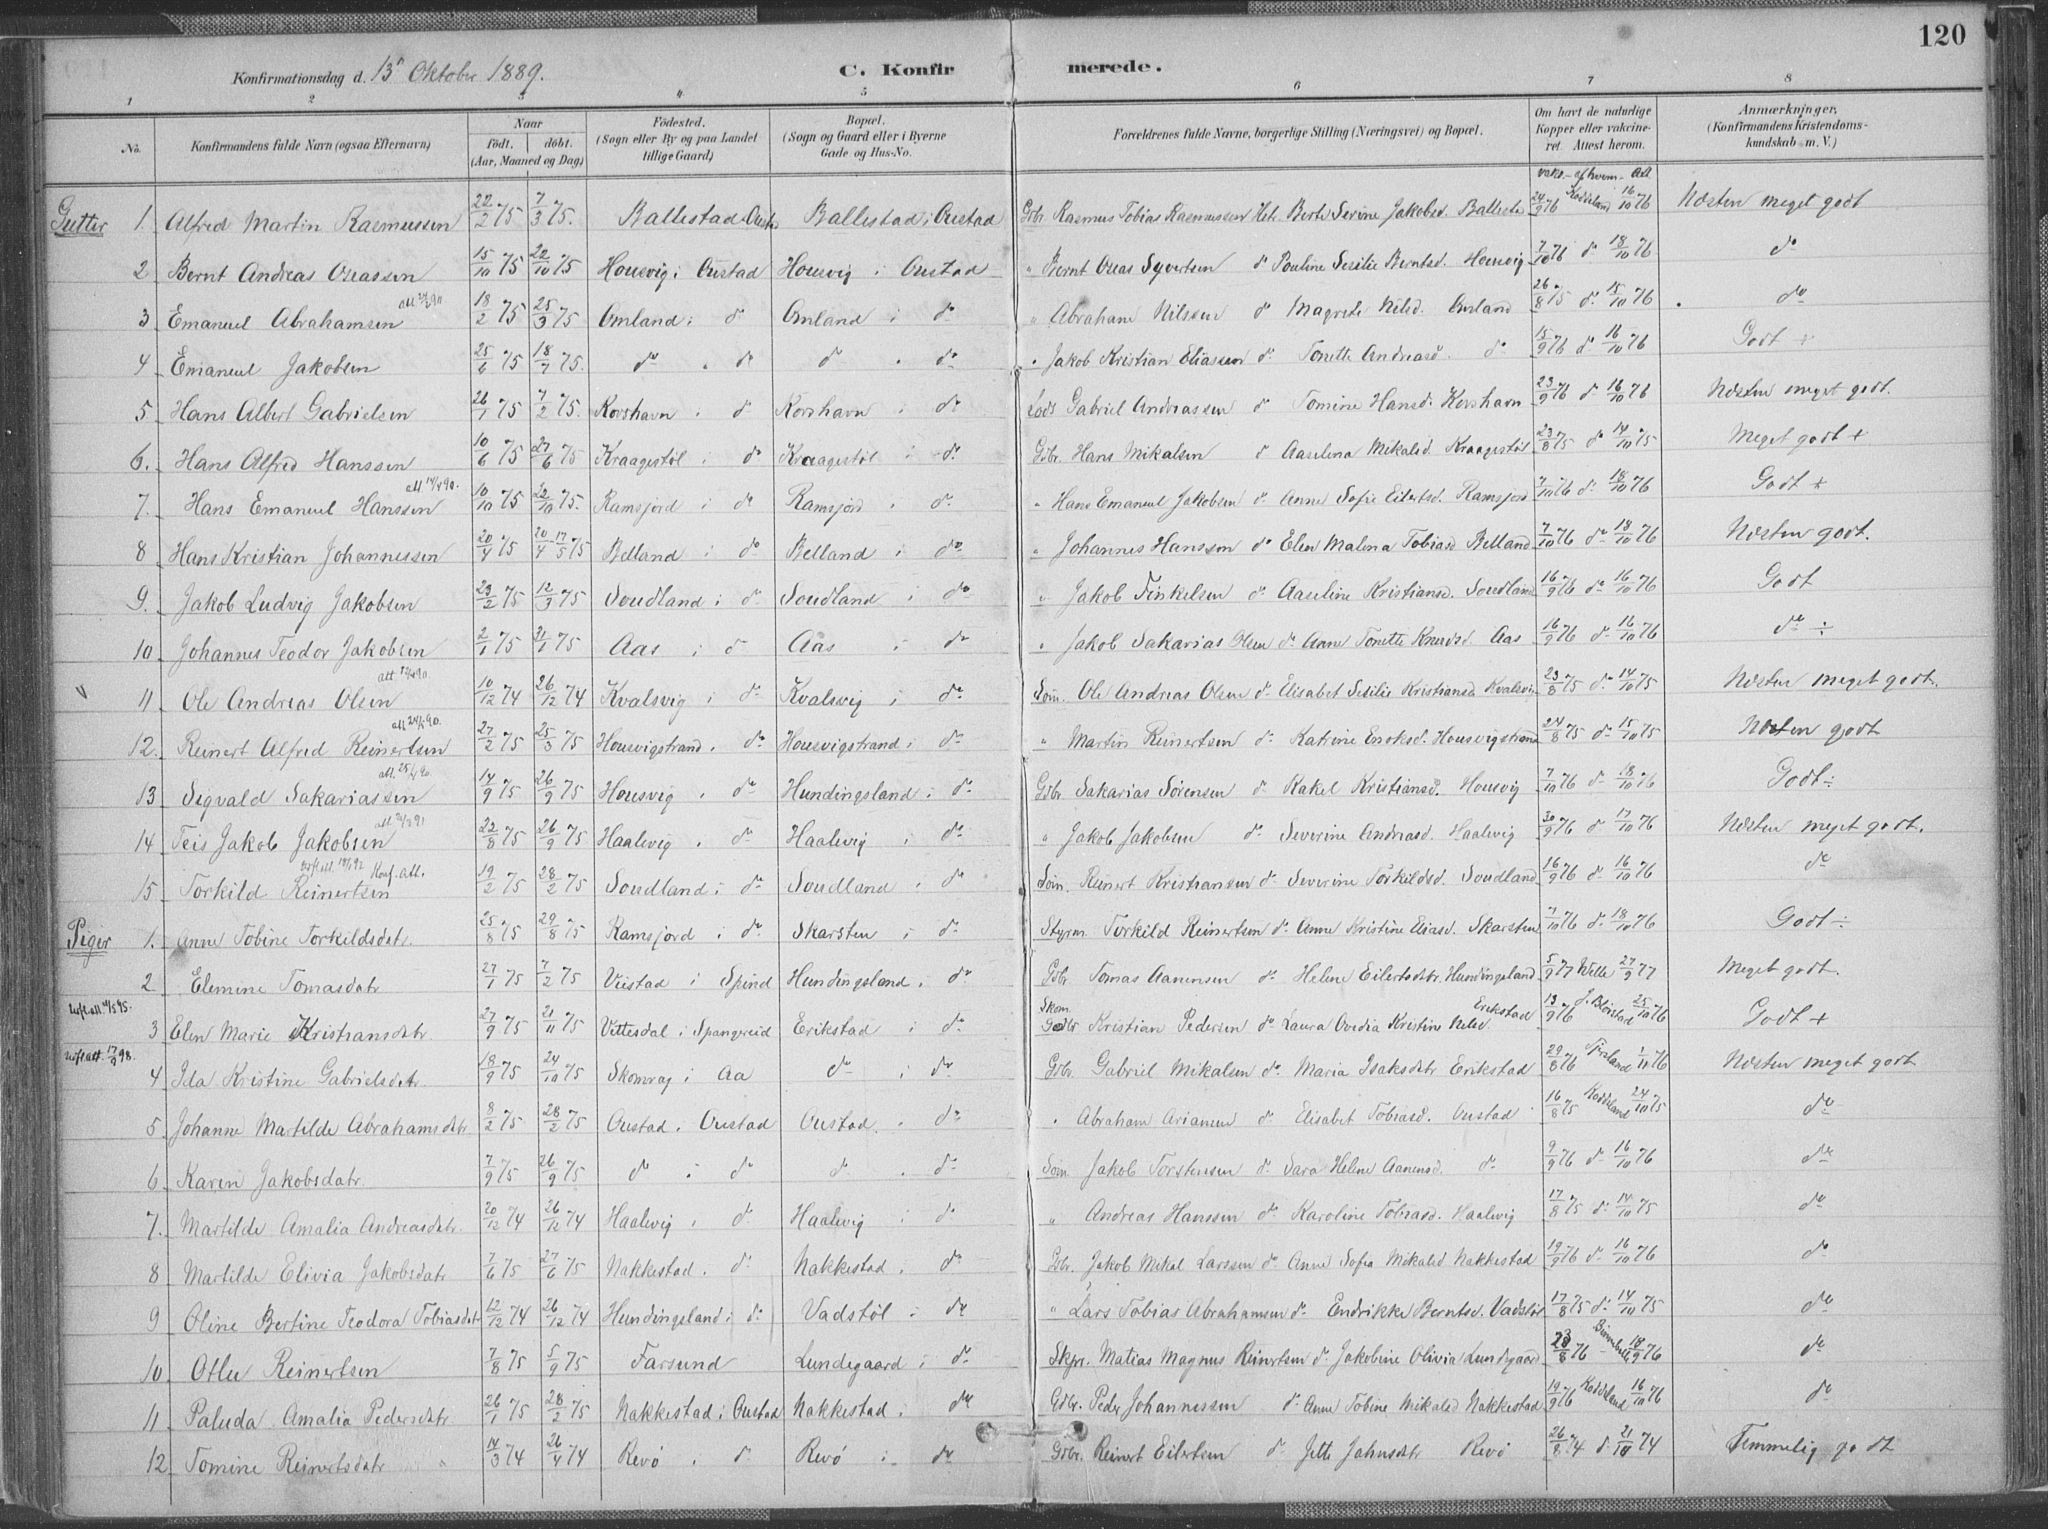 120
Konfirmationsdag d. 13' Oktober 1889.
C. Konfirmerede.
1 2 3 4 5 6 7 8
No. Konfirmandens fulde Navn (ogsaa Efternavn) Naar født. døbt. (Aar, Maaned og Dag) Födested. (Sogn eller By og paa Landet tillige Gaard) Bopæl. (Sogn og Gaard eller i Byerne Gade og Hus-No. Forældrenes fulde Navne, borgerlige Stilling (Næringsvei) og Bopæl. Om havt de naturlige Kopper eller vakcineret. Attest herom. Anmærkninger. (Konfirmandens Kristendomskundskab m. V.)
vakc. - af hvem - Att
Gutter 1. Alfred Martin Rasmussen 22/2 75 7/3 75. Ballestad Oustad Ballestad i Oustad Gbr. Rasmus Tobias Rasmussen Hst. Berte Serine Jakobsd. Balleste 24/9 76 Koddeland 16/10 76 Næsten meget godt
2 Bernt Andreas Oseassen 15/10 75 22/10 75 Housvig i Oustad Housvig i Oustad " Bernt Oseas Syvertsen do Pouline Sesilie Berntsd. Housvig 7/10 76 do 18/10 76 do
3 Emanuel Abrahamsen 18/2 75 25/3 75 Omland i do Omland i do " Abraham Nilssen do Magrete Nilsd. Omland 26/8 75 do 15/10 76 do
4 Emanuel Jakobsen 25/6 75 18/7 75. do " do do " do " Jakob Kristian Eliassen do Tonette Andreasd. do 15/9 76 do 16/10 76 Godt +
5. Hans Albert Gabrielsen 26/1 75 7/2 75. Korshavn i do Korshavn i do Lods Gabriel Andreassen do Tomine Hansd. Korshavn 23/9 76 do 16/10 76 Næsten meget godt.
6. Hans Alfred Hanssen 10/6 75 27/6 75 Kraagestøl i do Kraagestøl i do Gbr. Hans Mikalsen do Aaselena Mikalsd. Kraagestøl 23/8 75 do 14/10 75 Meget godt +
7. Hans Emanuel Hanssen att 14/4 90. 10/10 75 22/10 75. Ramsjord i do Ramsjord " do " Hans Emanuel Jakobsen do Anne Sofie Eilertsd. Ramsjord 7/10 76 do 18/10 76 Godt +
8 Hans Kristian Johannessen 20/4 75 20/4 17/5 75 Belland i do Belland i do " Johannes Hanssen do Elen Malena Tobiasd. Belland 7/10 76 do 18/10 76 Næsten godt.
9. Jakob Ludvig Jakobsen 23/2 75 12/3 75 Soudland i do Soudland i do " Jakob Tinkelsen do Aaseline Kristiansd. Soudland 16/9 76 do 16/10 76 Godt
10. Johannes Teodor Jakobsen 2/1 75 21/1 75 Aas i do Aas i do " Jakob Sakarias Olsen do Anne Tonette Knudsd. Aas 16/9 76 do 16/10 76 do ÷
v 11 Ole Andreas Olsen 10/12 74 26/12 74 Kvalsvig i do Kvalsvig i do Søm. Ole Andreas Olsen do Elisabet Sesilie Kristiansd. Kvalsvi 23/8 75 do 14/10 75 Næsten meget godt.
12. Reinert Alfred Reinertsen 27/2 75 25/3 75 Housvigstrand. do Housvigstrand i do " Martin Reinertsen do Katrine Enoksd. Housvigstrand 24/8 75 do 15/10 75 Næsten godt
13 Sigvald Sakariassen 14/9 75 26/9 75 Housvig " do Hundingsland i do Gbr Sakarias Sørensen do Rakel Kristiansd. Housvig 7/10 76 do 18/10 76 Godt ÷
14 Teis Jakob Jakobsen 22/8 75 26/9 75 Haalevig " do Haalevig i do " Jakob Jakobsen do Severine Andreasd. Haalevig 30/9 76 do 17/10 76 Næsten meget godt.
15 Torkild Reinertsen Konf. att. 19/2 75 28/2 75 Soudland i do Soudland i do Søm. Reinert Kristiansen do Severine Torkildsd. Soudland 16/9 76 do 16/10 76 do
Piger 1. Anne Tobine Torkildsdtr. 25/8 75 29/8 75 Ramsjord i do Skarsten i do Styrm. Torkild Reinertsen do Anne Kristine Eliasd. Skarsten 7/10 76 do 18/10 76 Godt ÷
2 Elemine Tomasdatr 27/1 75 7/2 75 Viestad i Spind Hundingsland. do Gbr Tomas Aanensen do Helene Eilertsdtr Hundingsland 5/9 77 Wille 27/9 77 Meget godt.
3 Elen Marie Kristiansdtr 27/9 75 21/11 75 Vittesdal i Spangereid Erikstad i do Skom. Gdbr Kristian Pedersen do Laura Ovedia Kristine Nilsd Erikstad 13/9 76 25/10 76 Godt +
4 Ida Kristine Gabrielsdtr. 18/9 75 24/10 75 Skomrag i Aa do i do Gdbr. Gabriel Mikalsen do Maria Isaksdtr Erikstad 29/8 76 1/10 76 Næsten meget godt
5. Johanne Martilde Abrahamsdtr 8/2 75 28/2 75 Oustad i Oustad Oustad. do " Abraham Arianssen do Elisabet Tobiasd. Oustad 16/8 75 Koddeland 24/10 75 do
6. Karen Jakobsdatr. 7/9 75 26/9 75 do i do do " do Søm. Jakob Torstensen do Sara Helene Aanensd. do 9/9 76 do 16/10 76 do
7. Martilde Amalia Andreasdtr. 20/12 74 26/12 74 Haalevig i do Haalevig i do " Andreas Hanssen do Karoline Tobiasd. Haalevig 17/8 75 do 14/10 75 do
8 Martilde Elivia Jakobsdatr 7/6 75 27/6 75 Nakkestad. do Nakkestad. do Gbr. Jakob Mikal Larssen do Anne Sofia Mikalsd Nakkestad 19/9 76 do 16/10 76 do
9 Oline Bertine Teodora Tobiasdtr 12/12 74 26/12 74 Hundingsland i do Vadstøl i do " Lars Tobias Abrahamsen do Endrikke Berntsd. Vadstøl 17/8 75 do 14/10 75 do
10. Otlu Reinertsen 7/8 75 5/9 75 Farsund Lundegaard i do Skpr. Matias Magnus Reinertsen do Jakobine Olivia Lundgaard 23/8 76 18/9 76 do
11 Paluda Amalia Pedersdtr 26/1 75 28/2 75 Nakkestad i Oustad Nakkestad i do Gdbr. Peder Johannessen do Anne Tobine Mikalsd Nakkestad 19/9 76 Koddeland 16/10 76 do
12 Tomine Reinertsdatr 14/3 74 26/4 74 Revø i do Revø i do Gdbr. Reinert Eilertsen do Jette Jahnsdtr Revø 26/8 74 do 21/10 74 Temmelig godt